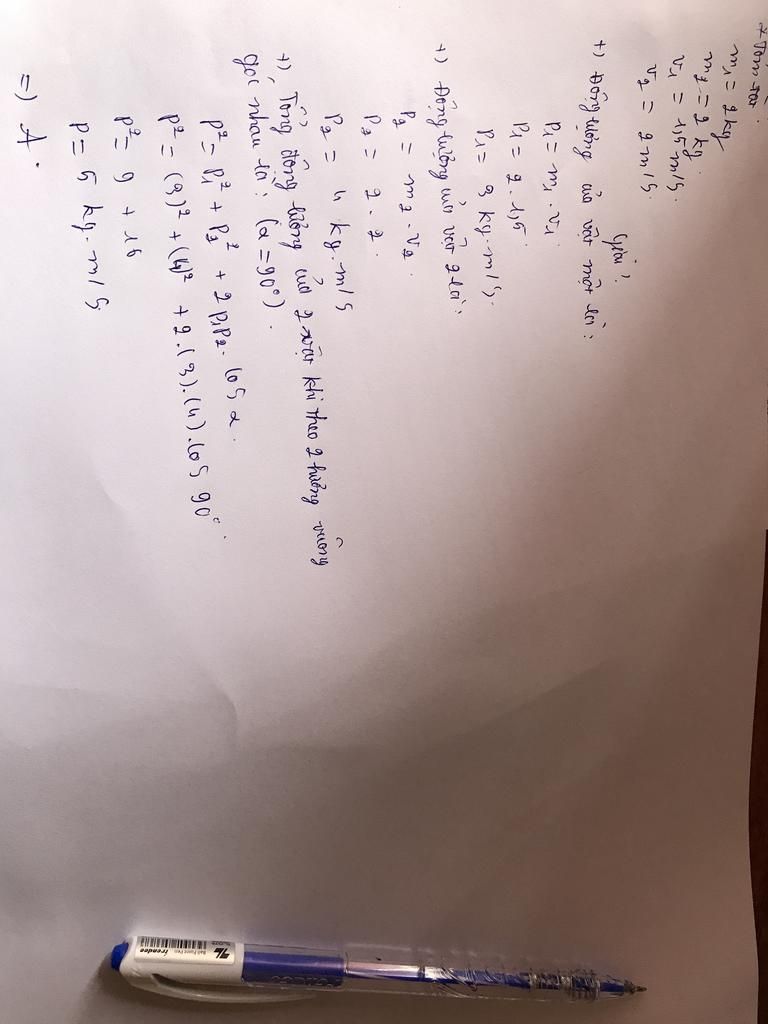 * Tóm tắt:
m1 = 2 kg
m2 = 2 kg.
v1 = 1,5 m/s.
v2 = 2 m/s.
Giải:
+) Động lượng của vật một là:
P1 = m1 . v1
P1 = 2 . 1,5.
P1 = 3 kg.m/s.
+) Động lượng của vật 2 là:
P2 = m2 . v2.
P2 = 2 . 2.
P2 = 4 kg.m/s
+) Tổng động lượng của 2 vật khi theo 2 hướng vuông
góc nhau là: (α = 90°).
P² = P1² + P2² + 2P1P2. cos α.
P² = (3)² + (4)² + 2.(3).(4).cos 90°.
P² = 9 + 16
P = 5 kg.m/s
=) A.
Trendee
Ball Point Pen